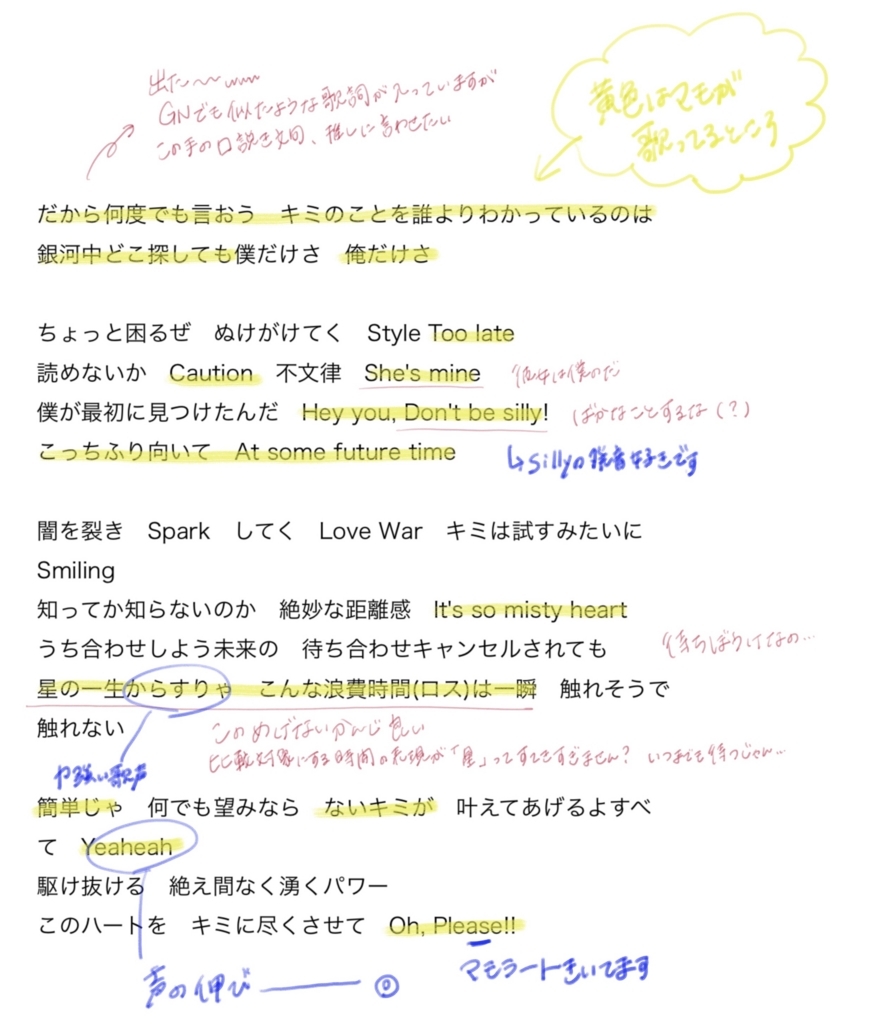 出た〜〜www
GNでも似たような歌詞が入っていますが
この手の口説き文句、推しに言わせたい
黄色はマモが
歌ってるところ
だから何度でも言おう　キミのことを誰よりわかっているのは
銀河中どこ探しても僕だけさ　俺だけさ
ちょっと困るぜ　ぬけがけてく　Style Too late
読めないか　Caution　不文律　She's mine　彼女は僕のだ
僕が最初に見つけたんだ　Hey you, Don't be silly!　ばかなことするな(?)
こっちふり向いて　At some future time
↳sillyの発音好きです
闇を裂き　Spark　してく　Love War　キミは試すみたいに
Smiling
知ってか知らないのか　絶妙な距離感　It's so misty heart
うち合わせしよう未来の　待ち合わせキャンセルされても　待ちぼうけなの…
星の一生からすりゃ　こんな浪費時間(ロス)は一瞬　触れそうで
触れない　このめげないかんじ良い
比較対象にする時間の表現が「星」ってすてきすぎません? いつまでも待つじゃん…
力強い歌声
簡単じゃ　何でも望みなら　ないキミが　叶えてあげるよすべ
て　Yeaheah
駆け抜ける　絶え間なく湧くパワー
このハートを　キミに尽くさせて　Oh, Please!!
声の伸び
マモラートきいてます